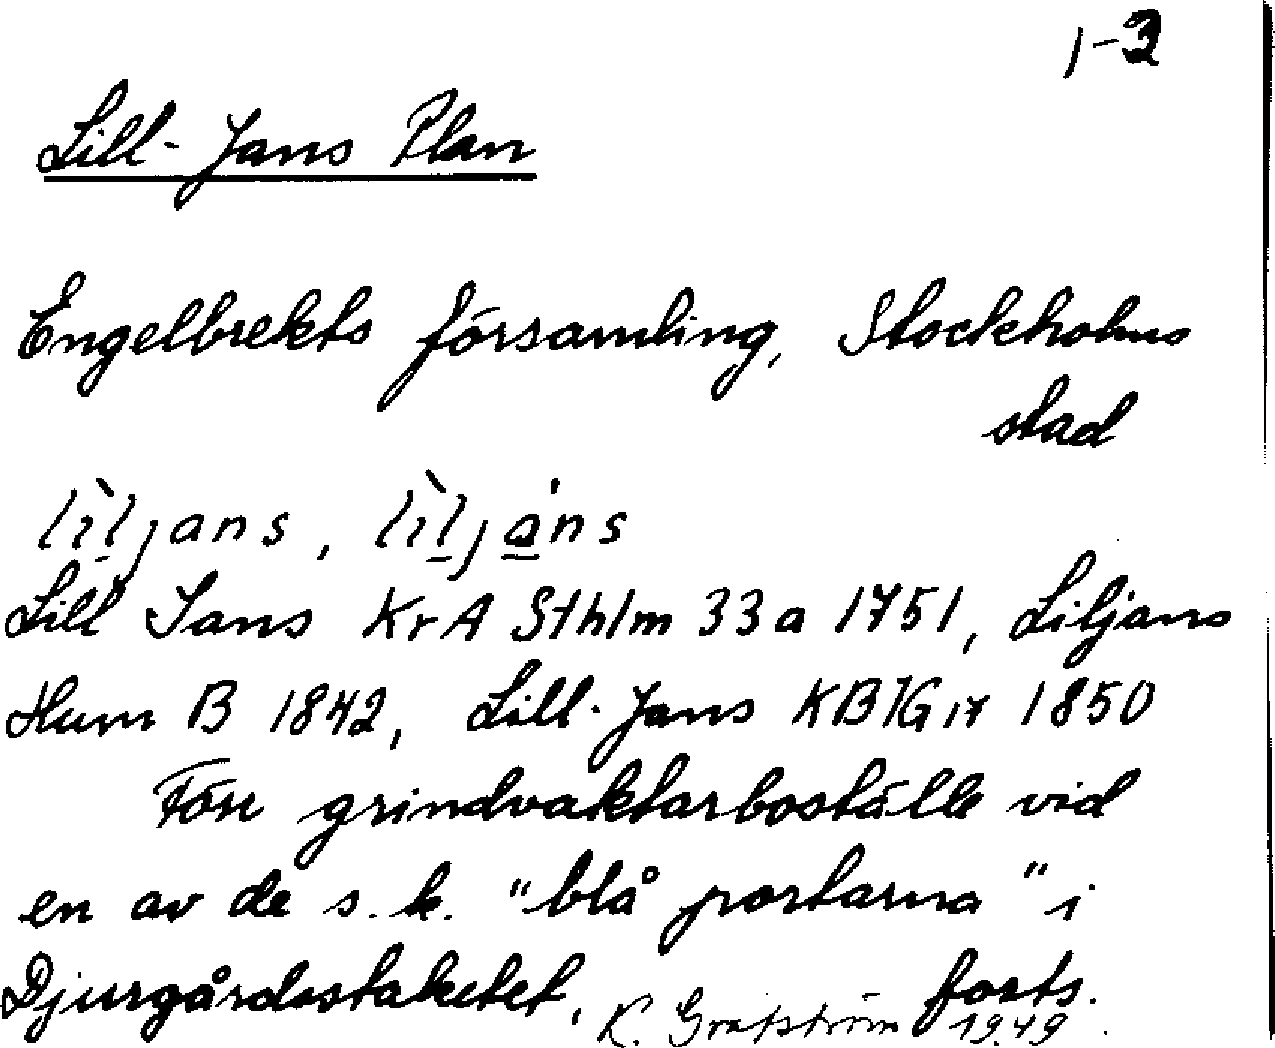 1-3
Lill-Jans Plan
Engelbrekts församling, Stockholms
stad
lìljans, lìljáns
Lill Jans KrA Sthlm 33a 1751, Liljans
Hum B 1842, Lill-Jans KB KG 17 1850
Förr grindvaktarboställe vid
en av de s.k. "blå portarna" i
Djurgårdsstaketet, forts.
K. Grafström 1949